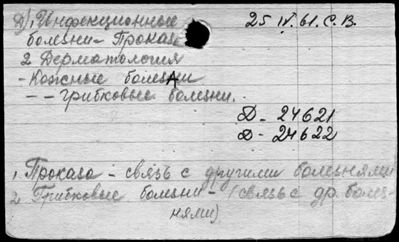 Д) 1. Инфекционные 25 IV. 61. С. В.
болезни - Проказа
2. Дерматология
- Кожные болезни
- - грибковые болезни.
Д - 24621
Д - 24622
1. Проказа - связь с другими болезнями
2. Грибковые болезни - (связь с др. болез-
нями)